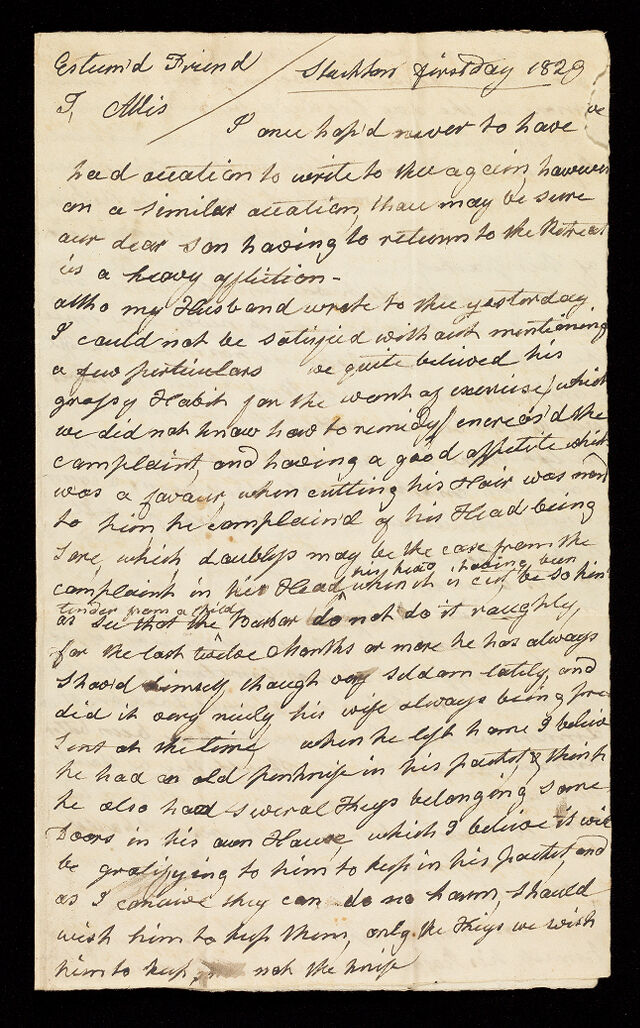 Esteem'd Friend
Stockton first day 1829
T, Allis
I once hop'd never to have
had occation to write to thee again, however
on a similar occation, thou may be sure
our dear son having to return to the Retreat
is a heavy affliction -
altho my Husband wrote to thee yesterday
I could not be satisfied without mentioning
a few perticulars we quite believed his
grossy Habit for the want of exercise / which
we did not know how to remidy / increas'd the
complaint, and having a good appetite which
was a favour when cutting his Hair was
to him, he complain'd of his Head being
Sore, which doubtless may be the case from the
complaint in his Head, when it is cut, be so kind
his head having been
tender from a child
as See that the Barbar do not do it roughly,
for the last twelve Months or more he has always
Shav'd himself though very Seldom lately, and
did it very nicely his wife always being pre=
Sent at the time when he left home I believe
he had an old penknife in his pocket, & I think
he also had Several Keys belonging some
Doors in his own House, which I believe it will
be gratifying to him to keep in his pocket, and
as I conceive they can do no harm, Should
wish him to keep them, only the Keys we wish
him to keep, not the knife